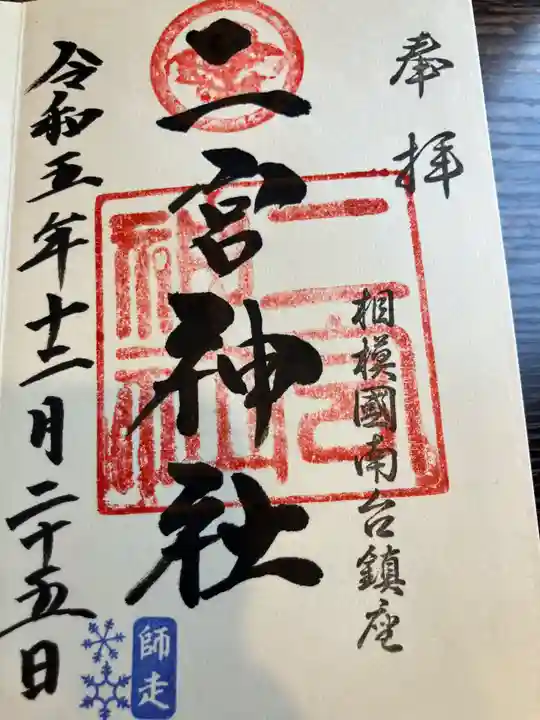 奉拝
相模國南台鎮座
二宮神社
二宮神社
令和五年十二月二十五日
師走